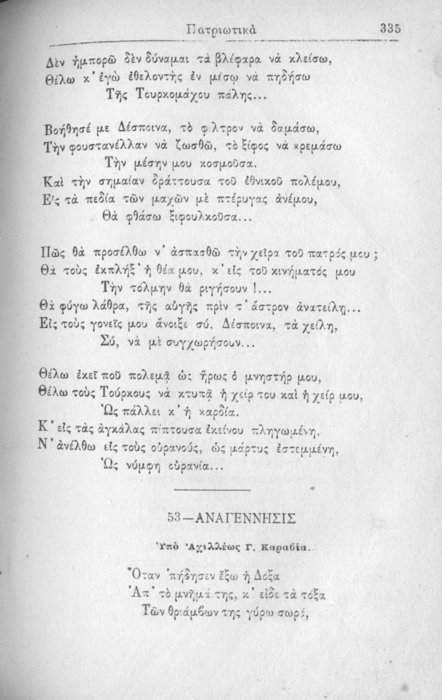 Πατριωτικὰ 335
Δὲν ἠμπορῶ δὲν δύναμαι τὰ βλέφαρα νὰ κλείσω,
Θέλω κ᾽ ἐγὼ ἐθελοντὴς ἐν μέσῳ νὰ πηδήσω
Τῆς Τουρκομάχου πάλης...
Βοήθησέ με Δέσποινα, τὸ φίλτρον νὰ δαμάσω,
Τὴν φουστανέλλαν νὰ ζωσθῶ, τὸ ξίφος νὰ κρεμάσω
Τὴν μέσην μου κοσμοῦσα.
Καὶ τὴν σημαίαν δράττουσα τοῦ ἐθνικοῦ πολέμου,
Εἰς τὰ πεδία τῶν μαχῶν μὲ πτέρυγας ἀνέμου,
Θὰ φθάσω ξιφουλκοῦσα...
Πῶς θὰ προσέλθω ν᾽ ἀσπασθῶ τὴν χεῖρα τοῦ πατρός μου;
Θὰ τοὺς ἐκπλήξ᾽ ἡ θέα μου, κ᾽ εἰς τοῦ κινήματός μου
Τὴν τόλμην θὰ ριγήσουν!...
Θὰ φύγω λάθρα, τῆς αὐγῆς πρὶν τ᾽ ἄστρον ἀνατείλῃ...
Εἰς τοὺς γονεῖς μου ἄνοιξε σύ, Δέσποινα, τὰ χείλη,
Σύ, νὰ μὲ συγχωρήσουν...
Θέλω ἐκεῖ ποῦ πολεμᾷ ὡς ἥρως ὁ μνηστήρ μου,
Θέλω τοὺς Τούρκους νὰ κτυπᾷ ἡ χείρ του καὶ ἡ χείρ μου,
Ὡς πάλλει κ᾽ ἡ καρδία.
Κ᾽ εἰς τὰς ἀγκάλας πίπτουσα ἐκείνου πληγωμένη.
Ν᾽ ἀνέλθω εἰς τοὺς οὐρανούς, ὡς μάρτυς ἐστεμμένη,
Ὡς νύμφη οὐρανία...
53—ΑΝΑΓΕΝΝΗΣΙΣ
Ὑπὸ Ἀχιλλέως Γ. Καραβία.
Ὅταν ᾽πήδησεν ἔξω ἡ Δόξα
Ἀπ᾽ τὸ μνῆμά της, κ᾽ εἶδε τὰ τόξα
Τῶν θριάμβων της γύρω σωρό,